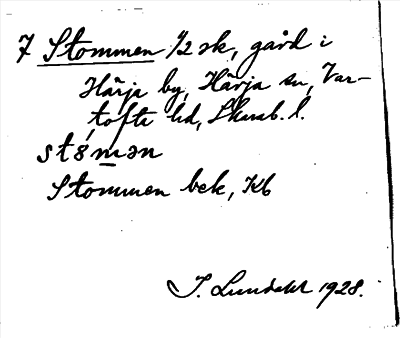 7 Stommen 1/2 sk, gård i
Härja by, Härja sn, Var-
tofts hd, Skarab. l.
stɵ́mən
Stommen bek, Kb
J. Lundahl 1928.